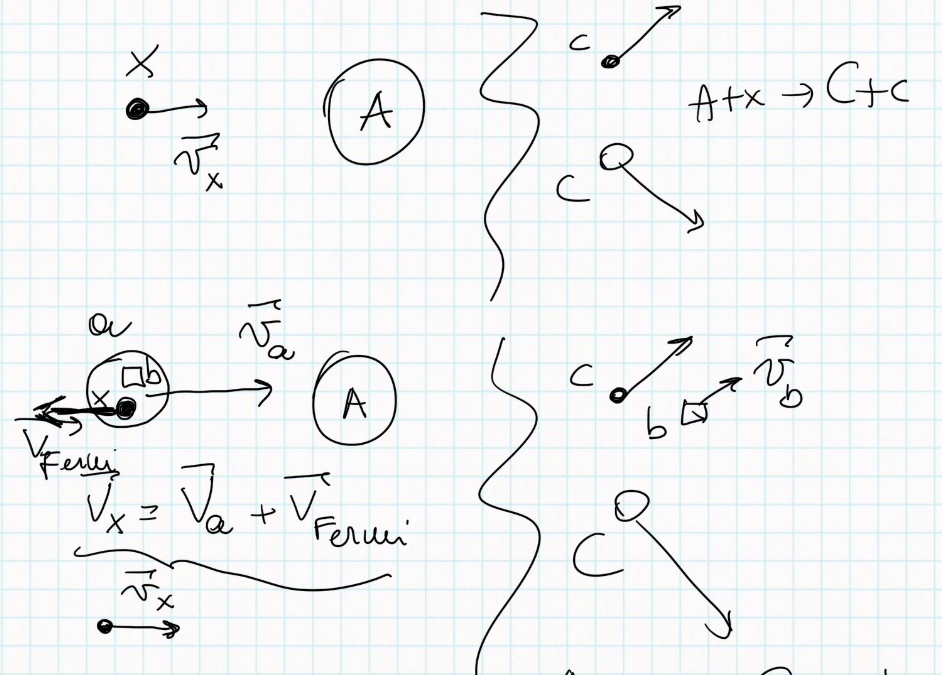 x
A
v⃗x
c
A+x → C+c
C
a
v⃗a
b
x
A
VFermi
V⃗x = V⃗a + V⃗Fermi
v⃗x
c
v⃗b
b
C